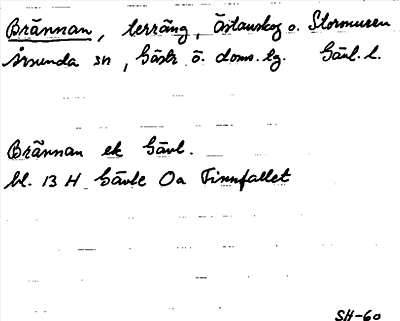 Brännan, terräng, Östanskog o. Stormuren
Årsunda sn, Gästr. ö. doms. lg. Gävl. l.
Brännan ek Gävl.
bl. 13 H Gävle 0a Finnfallet
SH-60